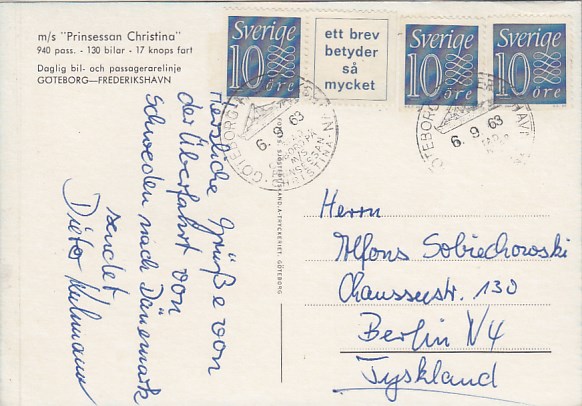 m/s "Prinsessan Christina"
940 pass. - 130 bilar - 17 knops fart
Daglig bil- och passagerarelinje
GÖTEBORG—FREDERIKSHAVN
Sverige
10 öre
ett brev
betyder
så
mycket
Sverige
10 öre
Sverige
10 öre
6. 9 63
6. 9 63
Herzliche Grüße von
der Überfahrt von
Schweden nach Dänemark
sendet
Dieter
Herrn
Alfons Sobiechowski
Chausseestr. 130
Berlin N4
Tyskland